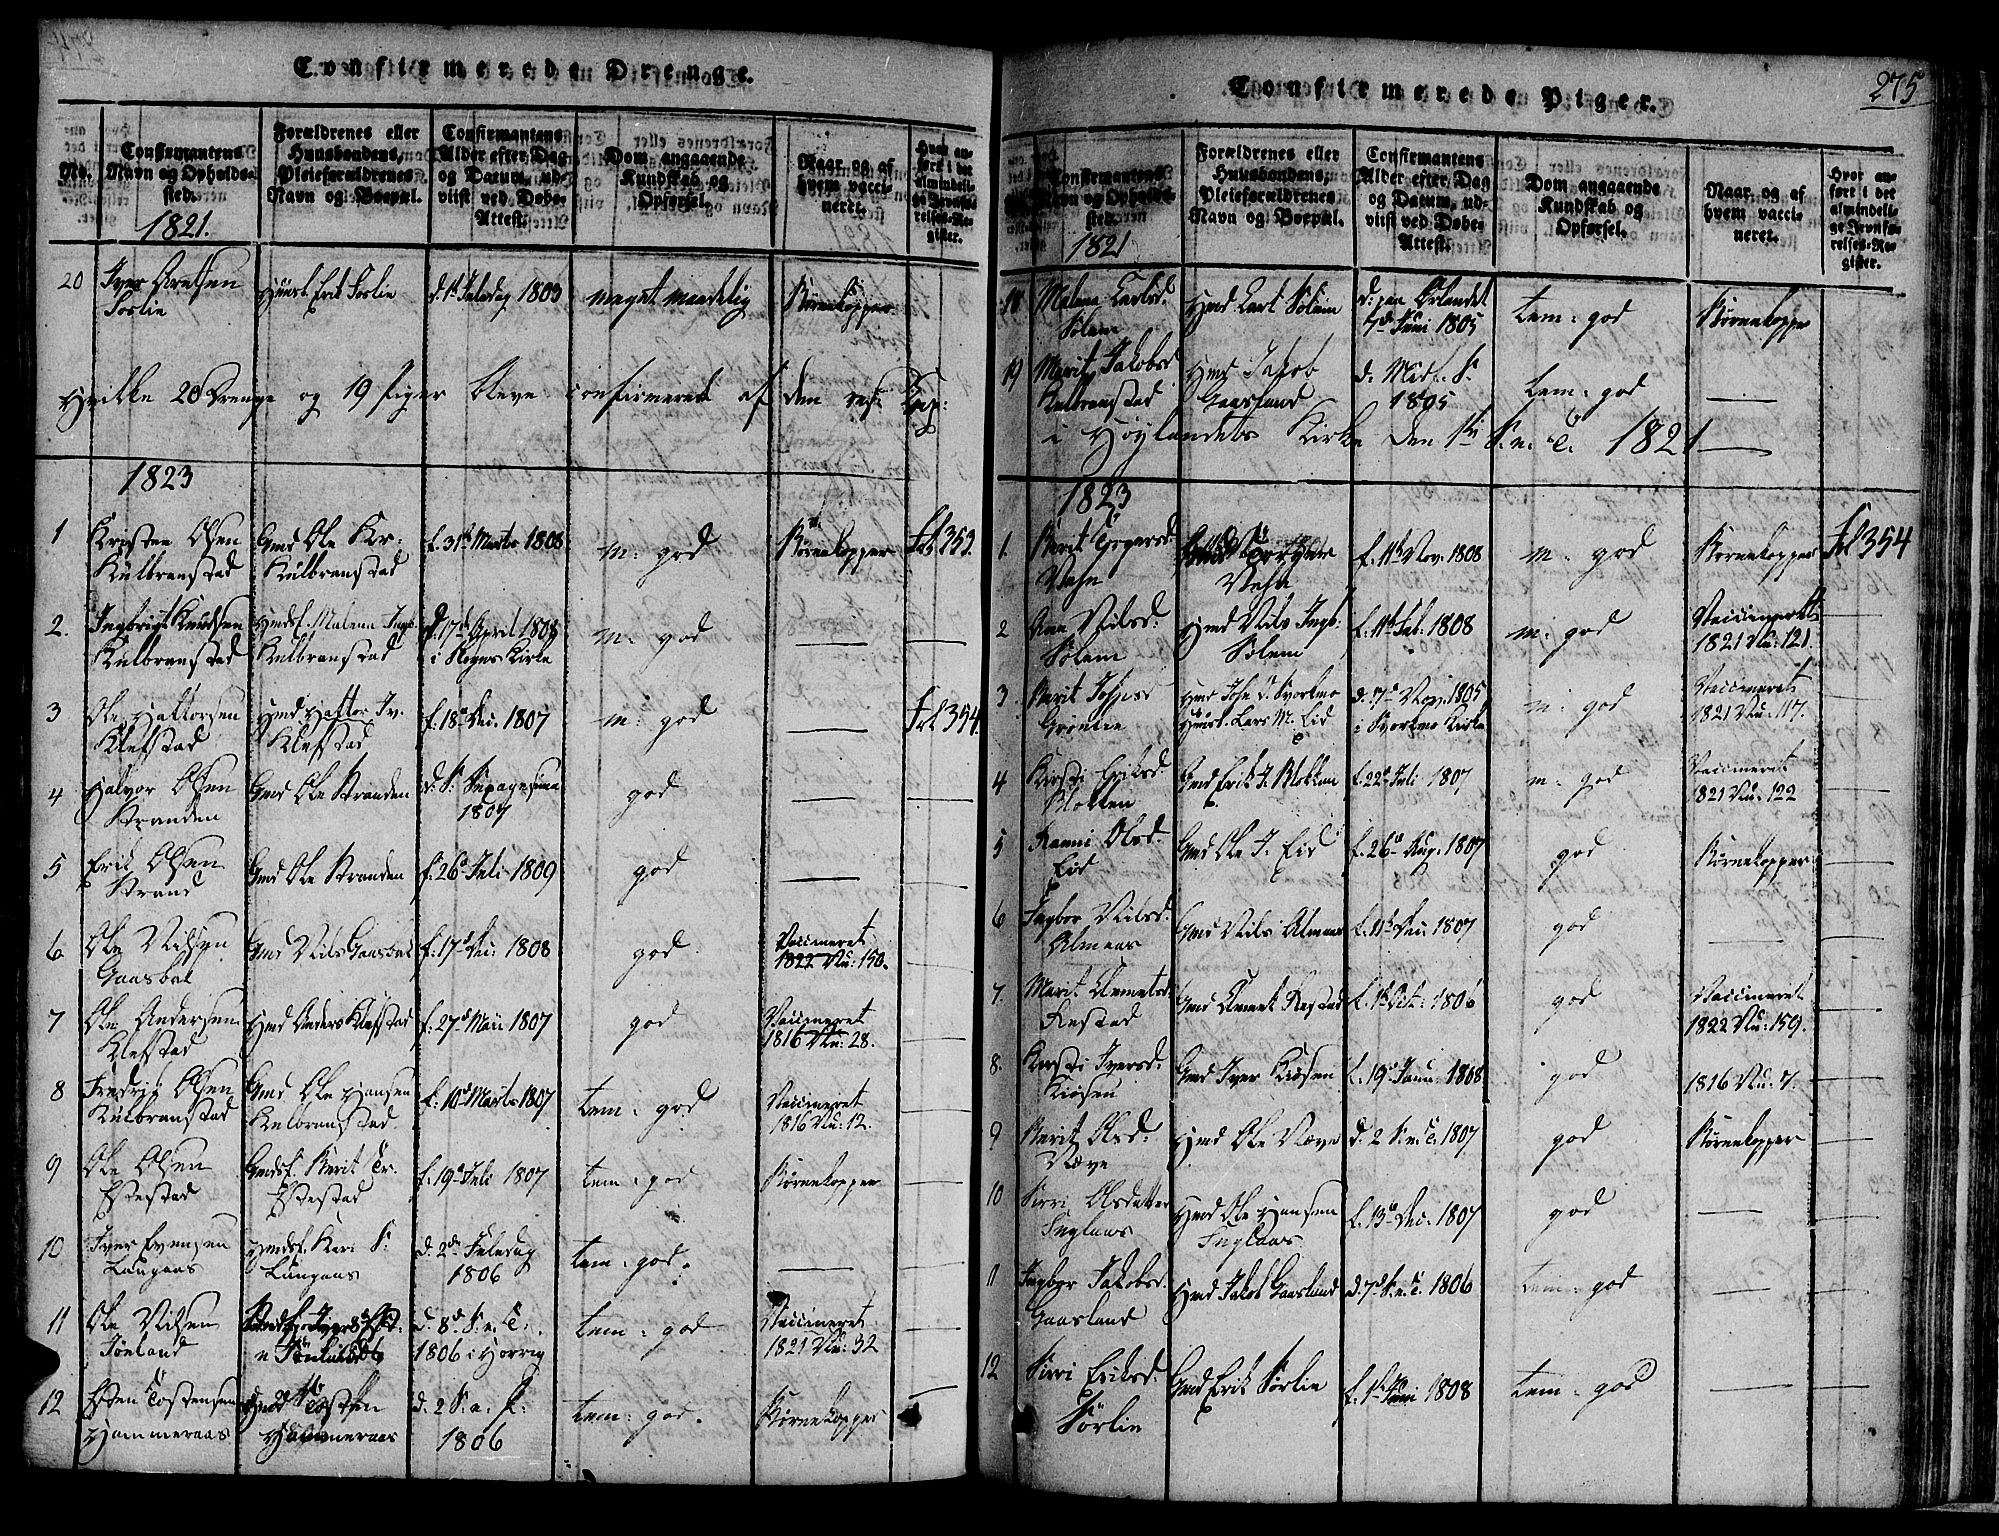 Confirmerede Drenge.
No.
Confirmantens
Navn og Opholds-
sted.
1821.
Forældrenes eller
Huusbondens,
Pleieforældrenes
Navn og Boepæl.
Confirmantens
Alder efter Dag
og Datum, ud-
viist ved Døbe-
Attest.
Dom angaaende
Kundskab og
Opførsel.
Naar, og af
hvem vacci-
neret.
Hvor an-
ført i det
almindeli-
ge Jevnfø-
relses-Re-
gister.
20 Iver
Huusb. Erik
1803
maget maadelig
Børnekopper
Hvilke 20 Drenge og 19 Piger bleve confirmerede af den res: Cap:
1823
1 Olsen
Kulbranstad
Gmd Ole Kr.
Kulbranstad
f. 31te Marts 1808
m: god
Børnekopper
Fol 353.
2. Ingbrigt Knudsen
Kulbranstad
Malena Ingb.
Kulbranstad
d. 17de April 1808
i Kirke
m: god
3 Ole Haltorsen
Klefstad
Hmd Haltor Iv.
Klefstad
f. 18de Dec. 1807
m: god
Fol 354.
4 Halvor Olsen
Stranden
Gmd Ole Stranden
d. S. Sepagesima
1807
god
5 Erik Olsen
Strand
Gmd Ole Stranden
f. 26de Juli 1809
god
6 Ole Nilsen
Gaasbak
Gmd Nils Gaasbak
f. 17de Dec: 1808
god
Vaccineret
1822 Nu: 150.
7 Ole Andersen
Klefstad
Hmd Anders Klefstad
f. 27de Maii 1807
god
Vaccineret
1816 Nu: 28.
8 Fredrik Olsen
Kulbranstad
Gmd Ole Hansen
Kulbranstad
f. 10de Marts 1807
tem: god
Vaccineret
1816 Nu: 12.
9 Ole Olsen
Gmdsf. Berit Tr.
f. 19de Juli 1807
tem: god
Børnekopper
10 Iver Evensen
Laugaas
Hmdsf. Kari
Laugaas
d. 2den Juledag
1806
tem: god.
11 Ole Nilsen
d. 8de S. e. T.
1806 i
tem: god
Vaccineret
1821 Nu: 32
12 Tostensen
Hammeraas
Hmd Tosten
Hammeraas
d. 2 S. a. P.
1806
tem: god.
Børnekopper
275
Confirmerede Piger.
Confirmantens
Navn og Opholds-
sted.
1821
Forældrenes eller
Huusbondens,
Pleieforældrenes
Navn og Boepæl.
Confirmantens
Alder efter Dag
og Datum, ud-
viist ved Døbe-
Attest.
Dom angaaende
Kundskab og
Opførsel.
Naar, og af
hvem vacci-
neret.
Hvor an-
ført i det
almindeli-
ge Jevnfø-
relses-Re-
gister.
18 Malena Carlsd.
Solem
Hmd Carl Solem
d: paa Ørlandet
7de Juni 1805
tem: god
Børnekopper
19 Marit Jakobsd
Kulbranstad
Hmd Jakob
Gaasland
1805
tem: god
i Høylandets Kirke den 1ste S. e. T. 1821
1823
1. Berit
Gmd
f. 11te Nov. 1808
m: god
Børnekopper
Fol 354
2 Ane Nilsd:
Solem
Hmd Nils Ingb.
Solem
f. 11te Feb. 1808
m: god
Vaccineret
1821 Nu: 121.
3 Berit Johnsd
Hmd John
Huusb. Lars M. Eid
d. 7de Nov. 1805
i Kirke
m: god
Vaccineret
1821 Nu: 117.
4 Kirsti Eriksd.
Gmd Erik J.
f. 22de Juli 1807
m: god
Vaccineret
1821 Nu: 122
5 Olsd.
Eid
Gmd Ole J. Eid
f. 26de Aug. 1807
god
Børnekopper
6 Ingbor Nilsd.
Almaas
Gmd Nils Almaas
f. 11te Dec: 1807
god
7. Marit Clemetsd.
Gmd Clemet
f. 1ste Oct: 1806
god
Vaccineret
1822 Nu: 159.
8. Kirsti Iversd.
Kiøsen
Gmd Iver Kiøsen
f. 19de Janu: 1808
god
1816 Nu: 7.
9 Berit Olsd:
Næve
Hmd Ole Næve
d. 2 S. e. T. 1807
god
Børnekopper
10 Sirri Olsdatter
Fuglaas
Hmd Ole Hansen
Fuglaas
f. 13de Dec. 1807
god
11 Ingbor Jakobsd.
Gaasland
Hmd Jakob Gaasland
d. 7de S. e. T. 1806
tem: god
12 Sirri Eriksd.
Sørlie
Gmd Erik Sørlie
f. 1ste Juni 1808
tem: god